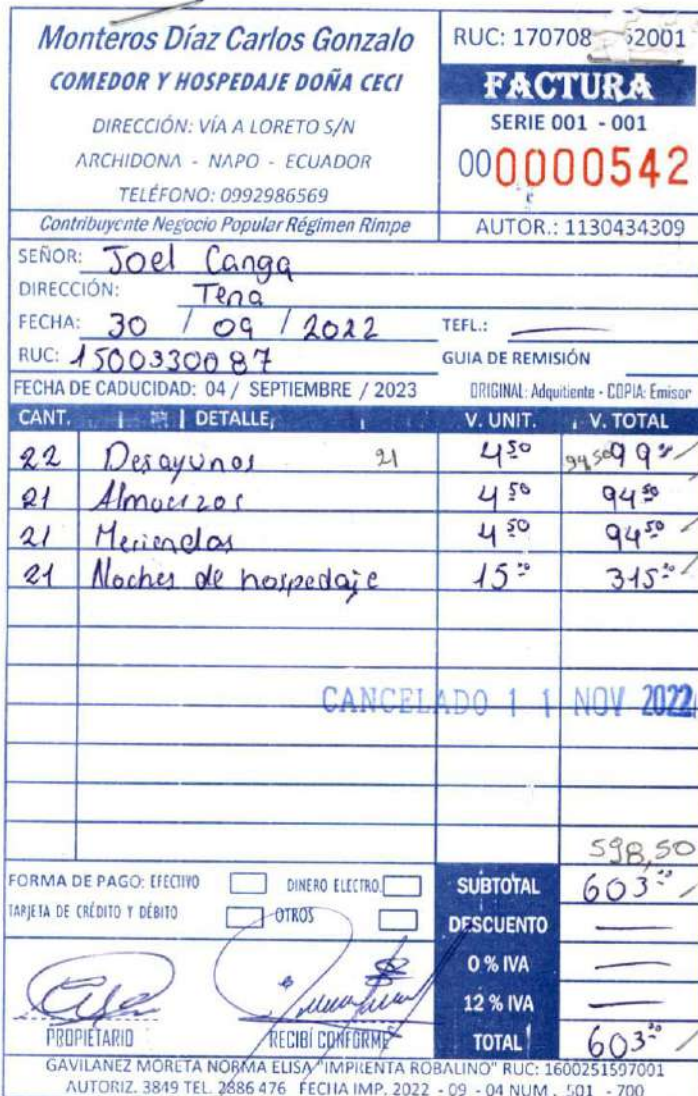 Monteros Díaz Carlos Gonzalo
COMEDOR Y HOSPEDAJE DOÑA CECI
DIRECCIÓN: VÍA A LORETO S/N
ARCHIDONA - NAPO - ECUADOR
TELÉFONO: 0992986569
Contribuyente Negocio Popular Régimen Rimpe
RUC: 170708 52001
FACTURA
SERIE 001 - 001
000000542
AUTOR.: 1130434309
SEÑOR: Joel Canga
DIRECCIÓN: Tena
FECHA: 30 / 09 / 2022 TEFL.:
RUC: 1500330087 GUIA DE REMISIÓN
FECHA DE CADUCIDAD: 04 / SEPTIEMBRE / 2023 ORIGINAL: Adquitiente - COPIA: Emisor
CANT. DETALLE V. UNIT. V. TOTAL
22 Desayunos 21 4 50 94,50 99 00
21 Almuerzos 4 50 94 50
21 Meriendas 4 50 94 50
21 Noches de hospedaje 15 00 315 00
CANCELADO 11 NOV 2022
598,50
FORMA DE PAGO: EFECTIVO DINERO ELECTRO. SUBTOTAL 603 00
TARJETA DE CRÉDITO Y DÉBITO OTROS DESCUENTO —
0 % IVA —
12 % IVA —
PROPIETARIO RECIBÍ CONFORME TOTAL 603 00
GAVILANEZ MORETA NORMA ELISA "IMPRENTA ROBALINO" RUC: 1600251597001
AUTORIZ. 3849 TEL. 2886 476 FECHA IMP. 2022 - 09 - 04 NUM. 501 - 700